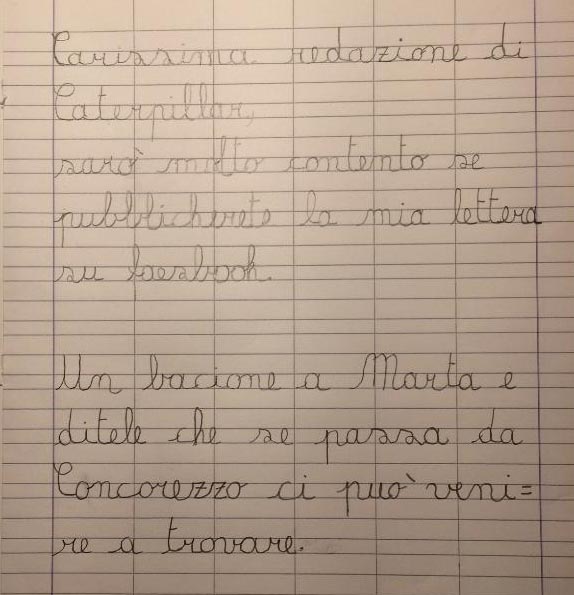 Carissima redazione di
Caterpillar,
sarò molto contento se
pubblicherete la mia lettera
su foesbook.
Un bacione a Marta e
ditele che se passa da
Concorezzo ci può veni=
re a trovare.